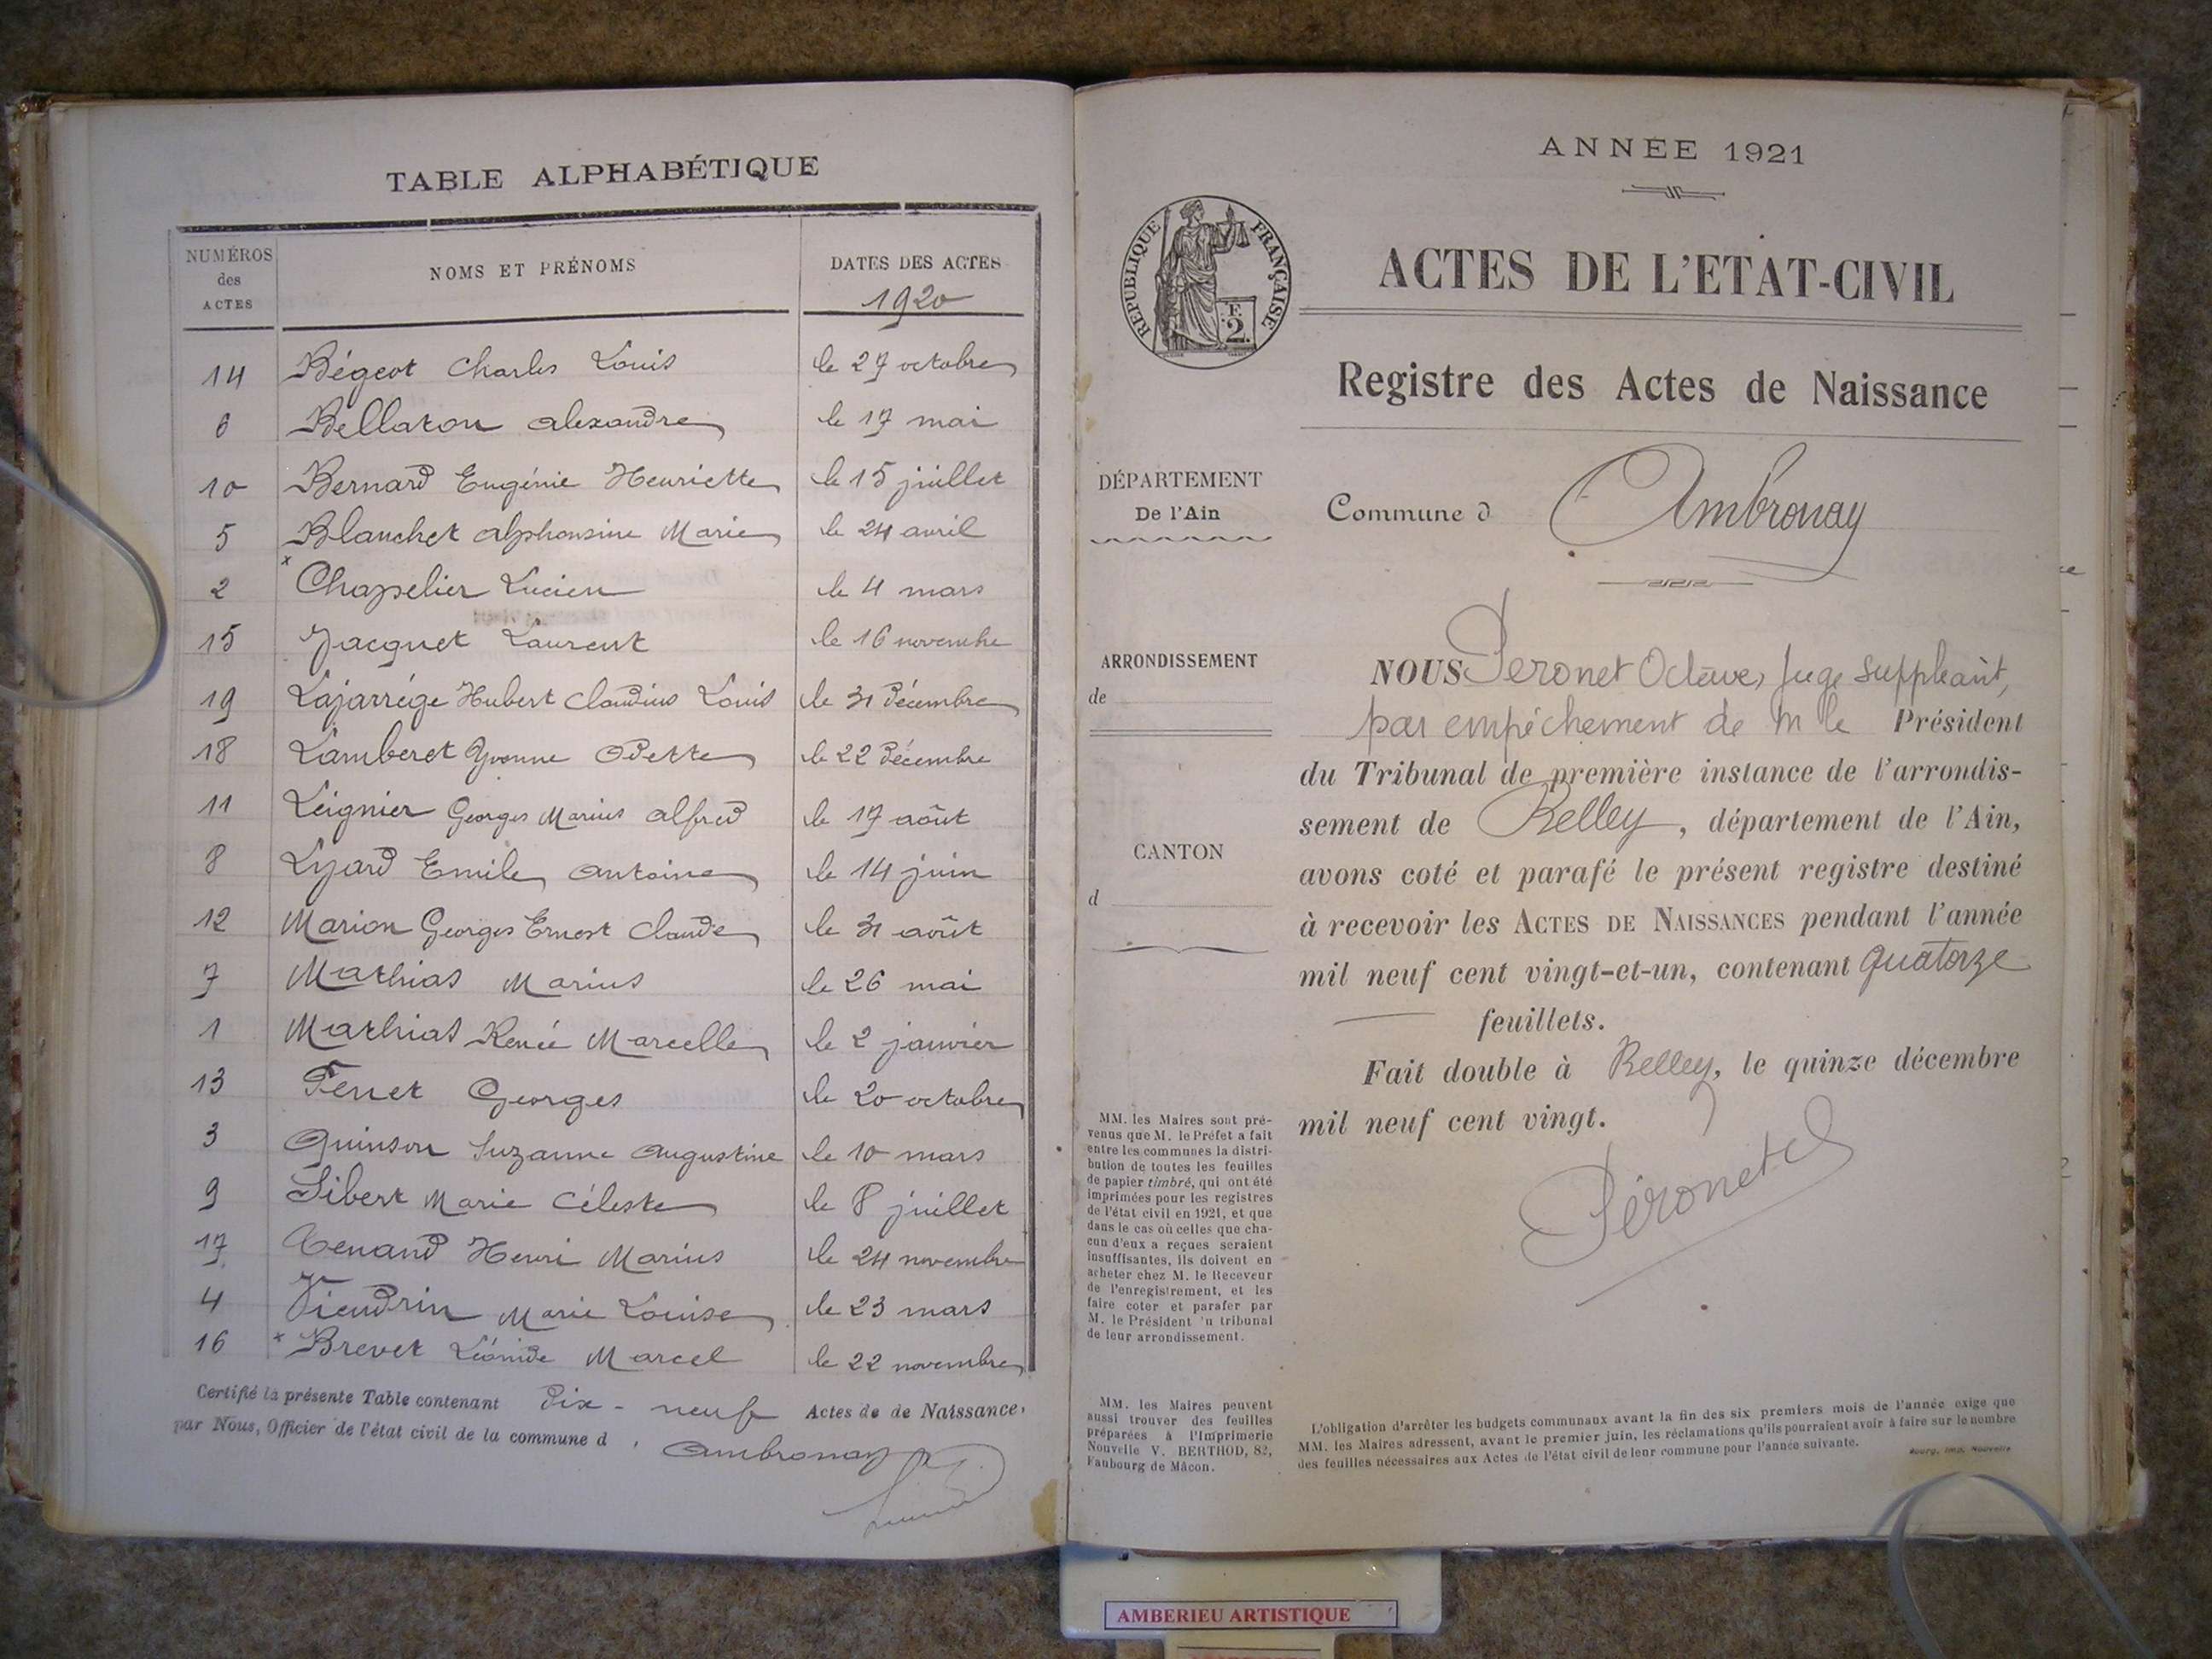 TABLE ALPHABÉTIQUE
NUMÉROS des ACTES
NOMS ET PRÉNOMS
DATES DES ACTES
1920
14 Bégeot Charles Louis le 27 octobre
6 Bellaton Alexandre le 17 mai
10 Bernard Eugénie Henriette le 15 juillet
5 Blanchet Alphonsine Marie le 24 avril
2 x Chapelier Lucien le 4 mars
15 Jacquet Laurent le 16 novembre
19 Lajarrége Hubert Claudius Louis le 31 Décembre
18 Lamberet Yvonne Odette le 22 Décembre
11 Leignier Georges Marius Alfred le 17 août
8 Lyard Emile Antoine le 14 juin
12 Marion Georges Ernest Claude le 31 août
7 Mathias Marius le 26 mai
1 Mathias Renée Marcelle le 2 janvier
13 Georges le 20 octobre
3 Quinson Suzanne Augustine le 10 mars
9 Sibert Marie Céleste le 8 juillet
17 Tenand Henri Marius le 24 novembre
4 Viendrin Marie Louise le 23 mars
16 x Brevet Léonide Marcel le 22 novembre
Certifié la présente Table contenant Dix-neuf Actes de de Naissance.
par Nous, Officier de l'état civil de la commune d' Ambronay
ANNÉE 1921
RÉPUBLIQUE FRANÇAISE
F. 2.
ACTES DE L'ETAT-CIVIL
Registre des Actes de Naissance
DÉPARTEMENT
De l'Ain
Commune d Ambronay
ARRONDISSEMENT
de
CANTON
d
NOUS Peronet Octave, Juge suppléant,
par empêchement de M le Président
du Tribunal de première instance de l'arrondis-
sement de Belley, département de l'Ain,
avons coté et parafé le présent registre destiné
à recevoir les ACTES DE NAISSANCES pendant l'année
mil neuf cent vingt-et-un, contenant quatorze
feuillets.
Fait double à Belley, le quinze décembre
mil neuf cent vingt.
Péronet
MM. les Maires sont pré-
venus que M. le Préfet a fait
entre les communes la distri-
bution de toutes les feuilles
de papier timbré, qui ont été
imprimées pour les registres
de l'état civil en 1921, et que
dans le cas où celles que cha-
cun d'eux a reçues seraient
insuffisantes, ils doivent en
acheter chez M. le Receveur
de l'enregistrement, et les
faire coter et parafer par
M. le Président 'u tribunal
de leur arrondissement.
MM. les Maires peuvent
aussi trouver des feuilles
préparées à l'Imprimerie
Nouvelle V. BERTHOD, 82,
Faubourg de Mâcon.
L'obligation d'arrêter les budgets communaux avant la fin des six premiers mois de l'année exige que
MM. les Maires adressent, avant le premier juin, les réclamations qu'ils pourraient avoir à faire sur le nombre
des feuilles nécessaires aux Actes de l'état civil de leur commune pour l'année suivante.
Bourg, Imp. Nouvelle
AMBERIEU ARTISTIQUE